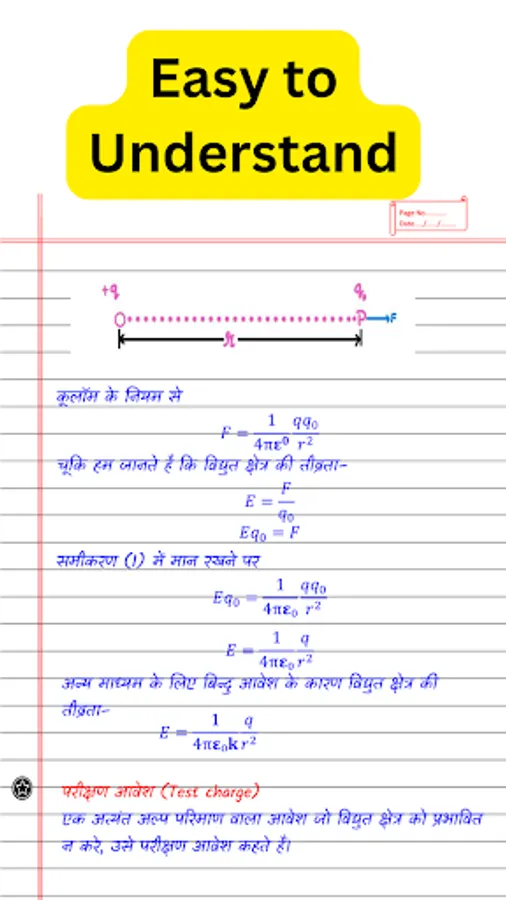 Easy to
Understand
Page No.
Date
+q
q₀
O
P
F
r
कूलॉम के नियम से
F = 1/4πε⁰ qq₀/r²
चूकि हम जानते हैं कि विद्युत क्षेत्र की तीव्रता-
E = F/q₀
Eq₀ = F
समीकरण (1) में मान रखने पर
Eq₀ = 1/4πε₀ qq₀/r²
E = 1/4πε₀ q/r²
अन्य माध्यम के लिए बिन्दु आवेश के कारण विद्युत क्षेत्र की
तीव्रता-
E = 1/4πε₀k q/r²
परीक्षण आवेश (Test charge)
एक अत्यंत अल्प परिमाण वाला आवेश जो विद्युत क्षेत्र को प्रभावित
न करे, उसे परीक्षण आवेश कहते हैं।